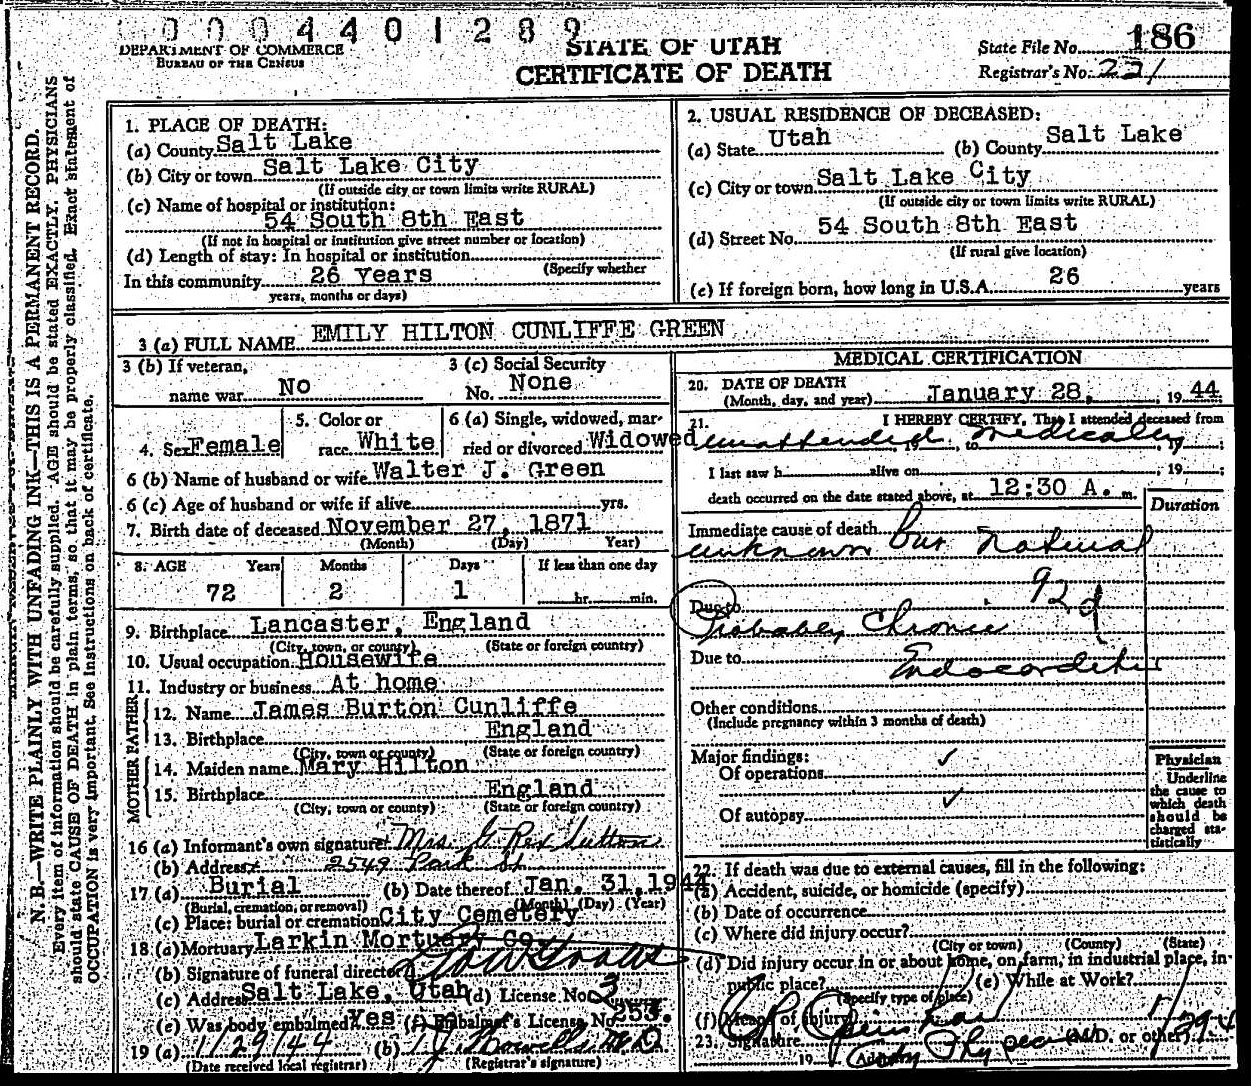 0 0 0 4 4 0 1 2 8 9
DEPARTMENT OF COMMERCE
BUREAU OF THE CENSUS
STATE OF UTAH
CERTIFICATE OF DEATH
State File No. 186
Registrar's No. 221
N. B.—WRITE PLAINLY WITH UNFADING INK—THIS IS A PERMANENT RECORD.
Every item of information should be carefully supplied. AGE should be stated EXACTLY. PHYSICIANS
should state CAUSE OF DEATH in plain terms, so that it may be properly classified. Exact statement of
OCCUPATION is very important. See Instructions on back of certificate.
1. PLACE OF DEATH:
(a) County Salt Lake
(b) City or town Salt Lake City
(If outside city or town limits write RURAL)
(c) Name of hospital or institution:
54 South 8th East
(If not in hospital or institution give street number or location)
(d) Length of stay: In hospital or institution
(Specify whether
In this community 26 Years
years, months or days)
2. USUAL RESIDENCE OF DECEASED:
(a) State Utah (b) County Salt Lake
(c) City or town Salt Lake City
(If outside city or town limits write RURAL)
(d) Street No. 54 South 8th East
(If rural give location)
(e) If foreign born, how long in U.S.A. 26 years
3 (a) FULL NAME EMILY HILTON CUNLIFFE GREEN
3 (b) If veteran,
name war No
3 (c) Social Security
No. None
4. Sex Female
5. Color or
race White
6 (a) Single, widowed, mar-
ried or divorced Widowed
6 (b) Name of husband or wife Walter J. Green
6 (c) Age of husband or wife if alive yrs.
7. Birth date of deceased November 27, 1871
(Month) (Day) Year)
8. AGE Years Months Days If less than one day
72 2 1 hr. min.
9. Birthplace Lancaster, England
(City, town, or county) (State or foreign country)
10. Usual occupation Housewife
11. Industry or business At home
FATHER
12. Name James Burton Cunliffe
13. Birthplace England
(City, town or county) (State or foreign country)
MOTHER
14. Maiden name Mary Hilton
15. Birthplace England
(City, town or county) (State or foreign country)
16 (a) Informant's own signature Mrs. G. Rex Sutton
(b) Address 2549 Park St.
17 (a) Burial (b) Date thereof Jan. 31, 1944
(Burial, cremation, or removal) (Month) (Day) (Year)
(c) Place: burial or cremation City Cemetery
18 (a) Mortuary Larkin Mortuary Co.
(b) Signature of funeral director
(c) Address Salt Lake, Utah (d) License No. 3
(e) Was body embalmed Yes (f) Embalmer's License No. 253.
19 (a) 1/29/44 (b) M.D.
(Date received local registrar) (Registrar's signature)
MEDICAL CERTIFICATION
20. DATE OF DEATH
(Month, day, and year) January 28, 19 44
21. I HEREBY CERTIFY, That I attended deceased from
unattended, 19 to medically, 19 ;
I last saw h alive on , 19 ;
death occurred on the date stated above, at 12:30 A. m.
Duration
Immediate cause of death
unknown but natural
92d
Due to
Probably Chronic
Due to
Endocarditis
Other conditions
(Include pregnancy within 3 months of death)
Major findings:
Of operations ✓
Of autopsy ✓
Physician
Underline
the cause to
which death
should be
charged sta-
tistically
22. If death was due to external causes, fill in the following:
(a) Accident, suicide, or homicide (specify)
(b) Date of occurrence
(c) Where did injury occur?
(City or town) (County) (State)
(d) Did injury occur in or about home, on farm, in industrial place, in
public place? (e) While at Work?
(Specify type of place)
(f) Means of injury
23. Signature (M.D. or other)
19 Address City Phy